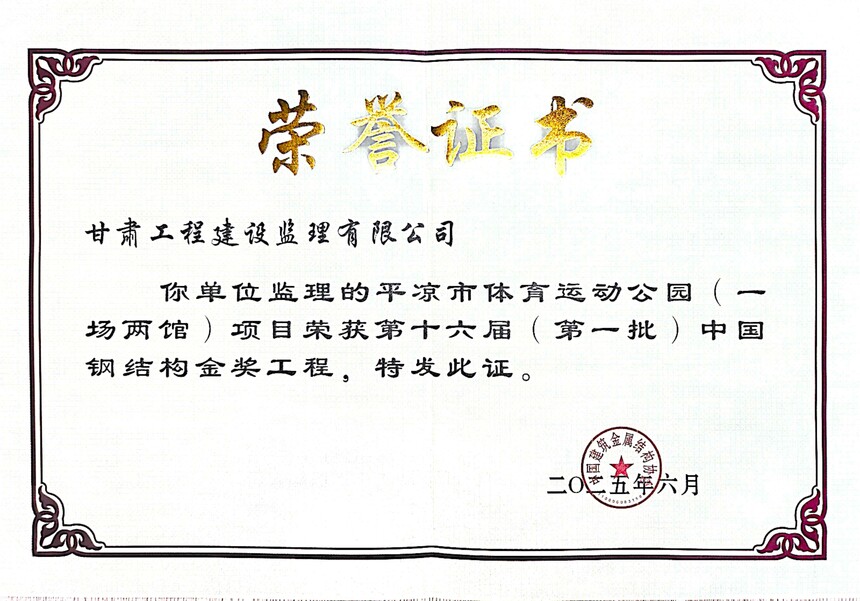 荣誉证书
甘肃工程建设监理有限公司
你单位监理的平凉市体育运动公园（一
场两馆）项目荣获第十六届（第一批）中国
钢结构金奖工程，特发此证。
中国建筑金属结构协会
二〇二五年六月